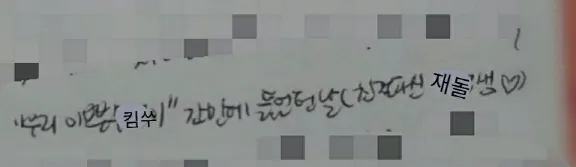 "우리 이쁜 킴쑤" 간만에 들었던 날 (친절하신 재돌쌤♡)